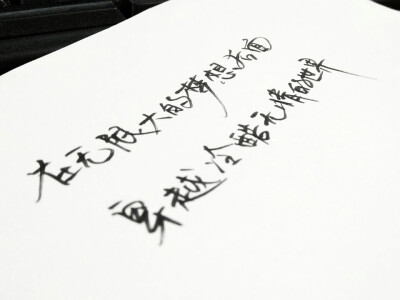 在无限大的梦想后面
穿越冷酷无情的世界